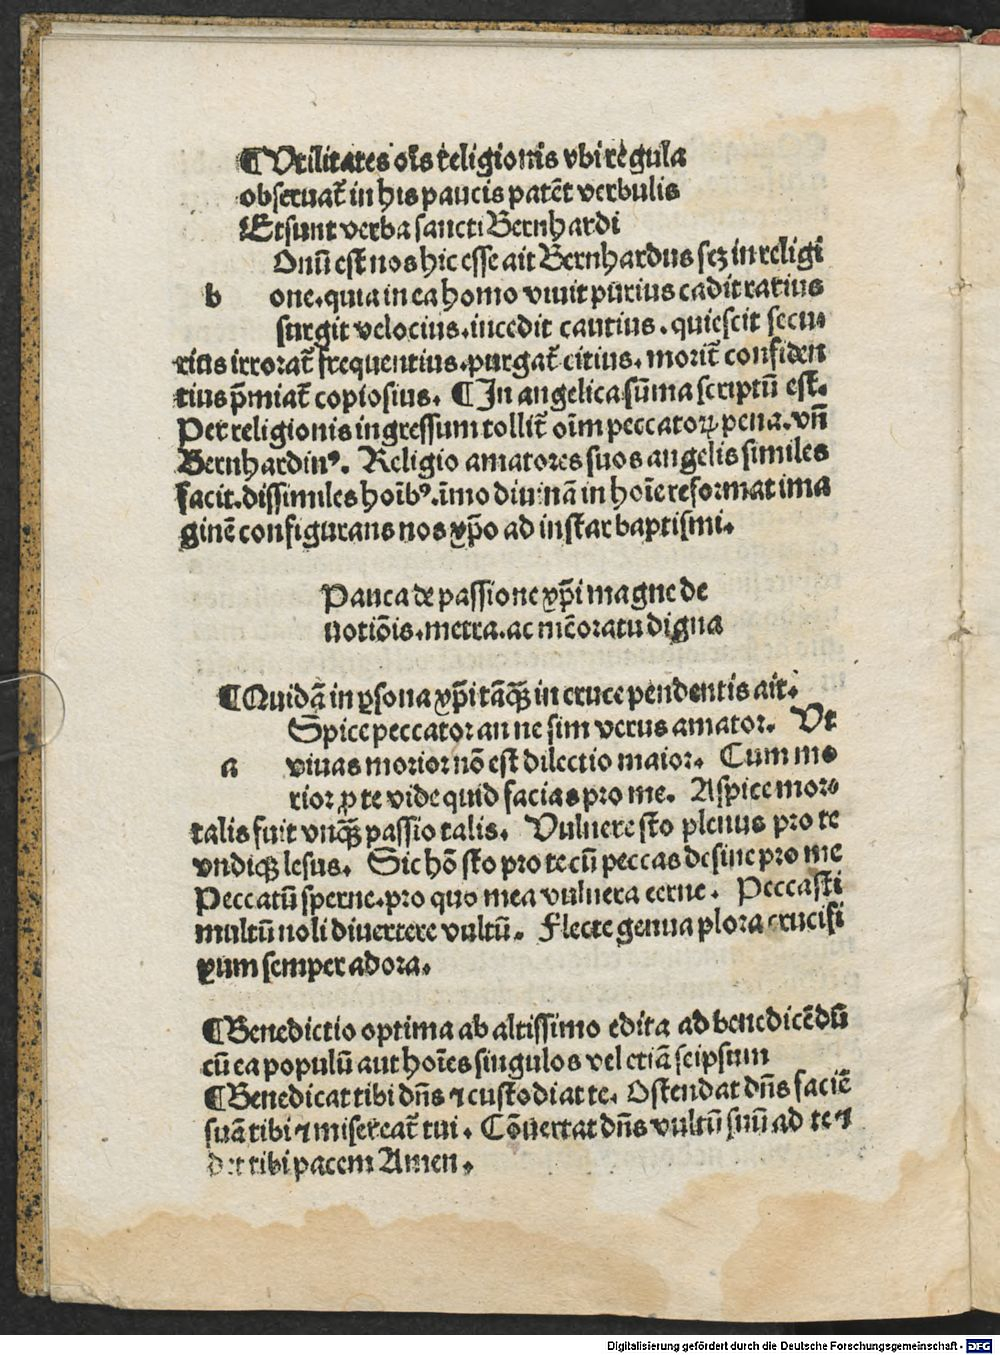 ¶Vtilitates oīs religionis vbi regula
obseruat᷑ in his paucis patēt verbulis
Et sunt verba sancti Bernhardi
Onū est nos hic esse ait Bernhardus sꝫ in religi
b one. quia in ea homo viuit purius cadit rarius
surgit velocius. incedit cautius. quiescit secu-
rius irrorat᷑ frequentius. purgat᷑ citius. morit᷑ confiden
tius p̄miat᷑ copiosius. ¶In angelica sūma scriptū est.
Per religionis ingressum tollit᷑ oīm peccatoꝝ pena. vn̄
Bernhardinꝰ. Religio amatores suos angelis similes
facit. dissimiles hoībꝰ. īmo diuinā in hoīe reformat ima
ginē configurans nos xp̄o ad instar baptismi.
Pauca de passione xp̄i magne de
uotiōis. metra. ac mēoratu digna
¶Quidā in ꝑsona xp̄i tāꝙ̄ in cruce pendentis ait.
Spice peccator an ne sim verus amator. Vt
a viuas morior nō est dilectio maior. Cum mo
rior ꝓ te vide quid facias pro me. Aspice mor-
talis fuit vnꝙ̄ passio talis. Vulnere sto plenus pro te
vndiqꝫ lesus. Sic hō sto pro te cū peccas desine pro me
Peccatū sperne. pro quo mea vulnera cerne. Peccasti
multū noli diuertere vultū. Flecte genua plora crucifi
xum semper adora.
¶Benedictio optima ab altissimo edita ad benedicēdū
cū ea populū aut hoīes singulos vel etiā seipsum
¶Benedicat tibi dn̄s ⁊ custodiat te. Ostendat dn̄s faciē
suā tibi ⁊ misereat᷑ tui. Cōuertat dn̄s vultū suū ad te ⁊
det tibi pacem Amen.
Digitalisierung gefördert durch die Deutsche Forschungsgemeinschaft - DFG